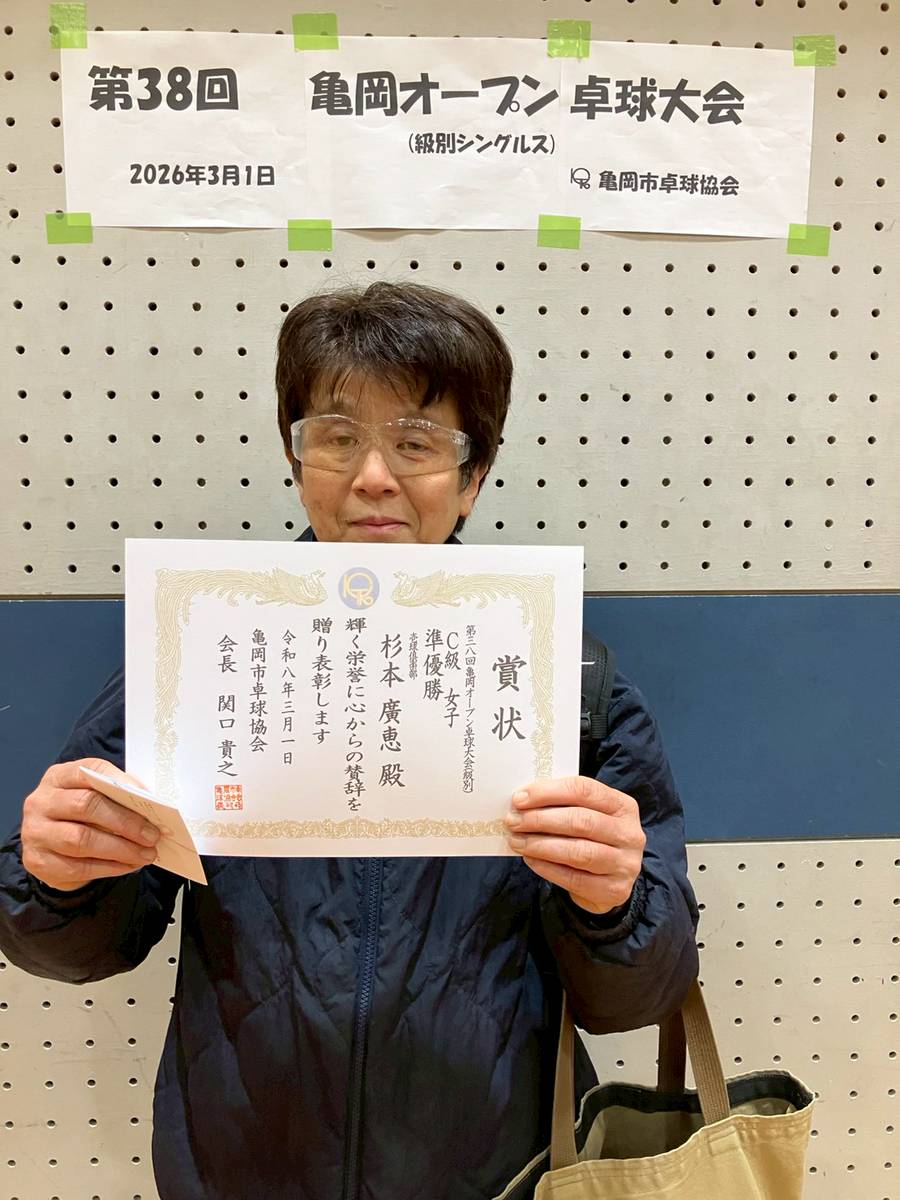 第38回 亀岡オープン 卓球大会
(級別シングルス)
2026年3月1日
亀岡市卓球協会
賞状
第三八回亀岡オープン卓球大会(級別)
C級 女子
準優勝
壱球倶楽部
杉本 廣恵 殿
輝く栄誉に心からの賛辞を
贈り表彰します
令和八年三月一日
亀岡市卓球協会
会長 関口 貴之